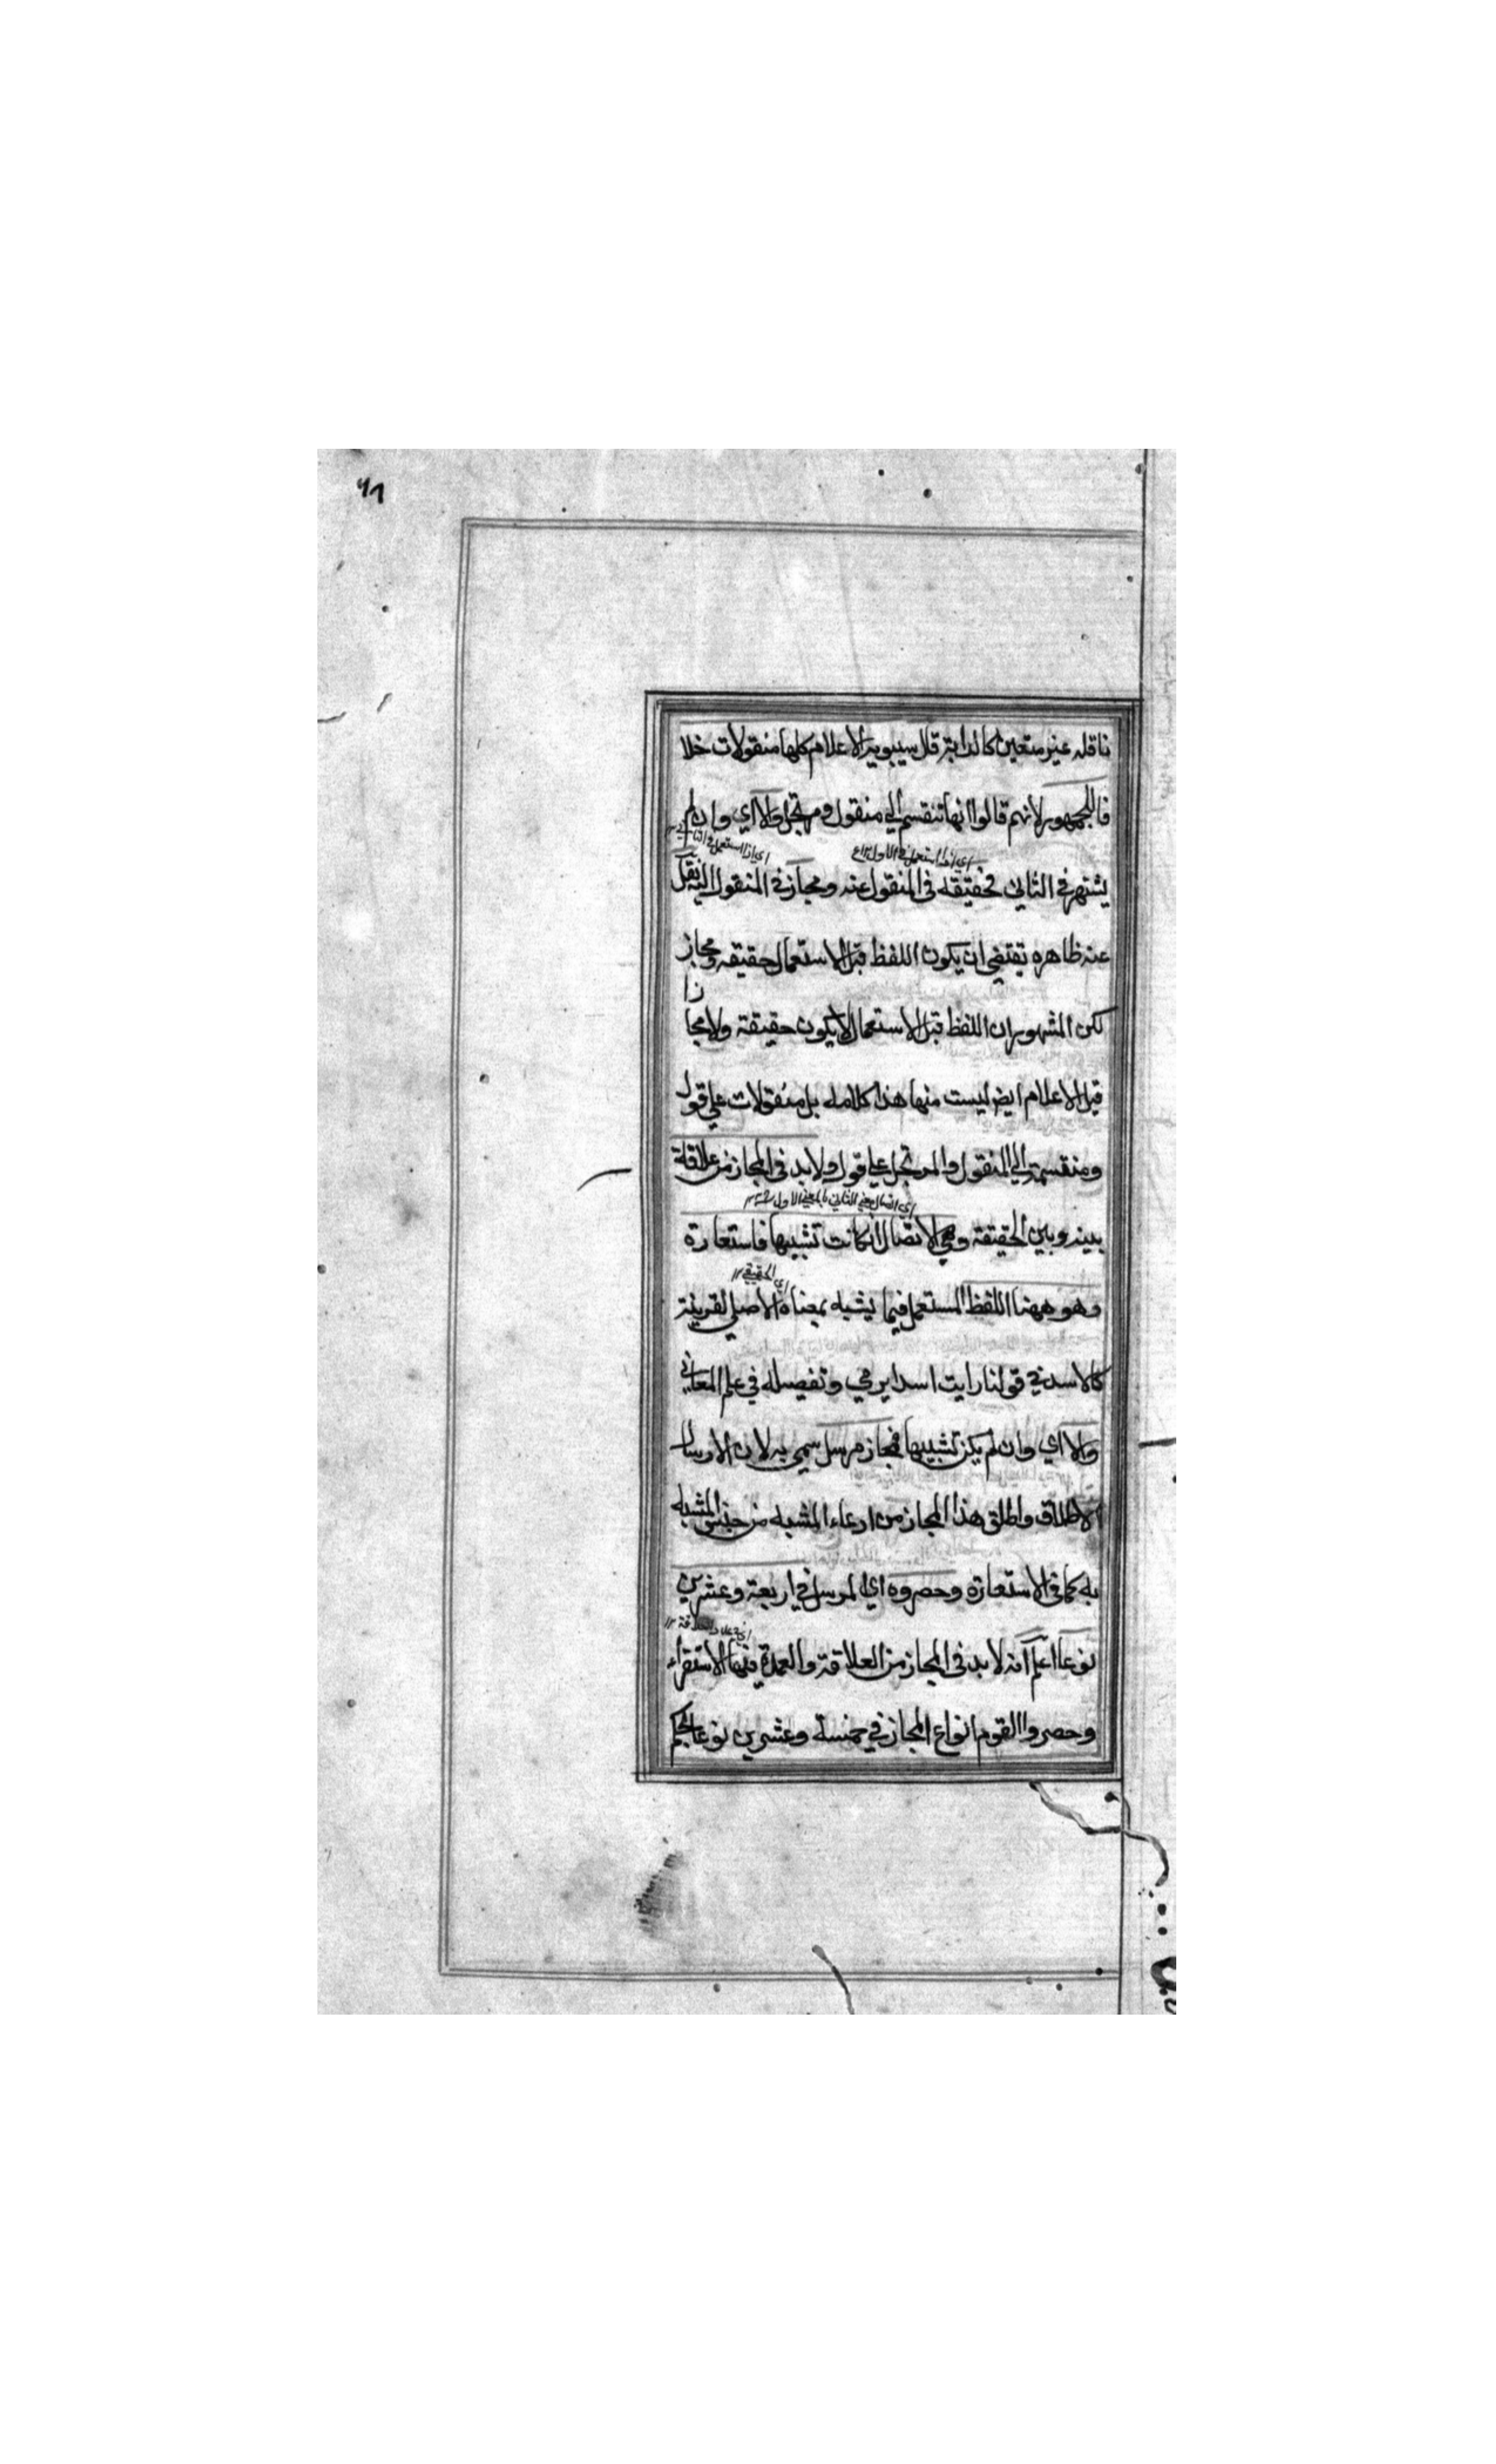 ٦١
ناقله غير متعين كالدابة قال سيبويه الاعلام كلها منقولات خلا
فا للجمهور لانهم قالوا انها تنقسم الي منقول ومرتجل والا اي وان لم
اي اذا استعمل في الاول اي اذا استعمل في الثاني
يشتهر في الثاني فحقيقة في المنقول عنه ومجاز في المنقول اليه نقل
عنه ظاهره يقتضي ان يكون اللفظ قبل الاستعمال حقيقه ومجاز
زا
لكن المشهور ان اللفظ قبل الاستعمال لا يكون حقيقة ولا مجا
قيل الاعلام ايض ليست منها هذا كلامه بل منقولات علي قول
ومنقسمة الي المنقول والمرتجل علي قول ولا بد في المجاز من علاقة
اي اتصال معني الثاني بالمعني الاول
بينه وبين الحقيقة وهي الاتصال ان كانت تشبيها فاستعارة
اي الحقيقي ١٢
وهو ههنا اللفظ المستعمل فيما يشبه بمعناه الاصلي لقرينة
كالاسد في قولنا رايت اسدا يرمي وتفصيله في علم المعاني
والا اي وان لم يكن تشبيها فمجاز مرسل سمي به لان الارسال
الاطلاق واطلق هذا المجاز من ادعاء المشبه من جنس المشبه
به كما في الاستعارة وحصروه اي المرسل في اربعة وعشرين
نوعا اعلم انه لا بد في المجاز من العلاقة والعمدة فيها الاستقراء
وحصروا القوم انواع المجاز في خمسة وعشرين نوعا بحكم